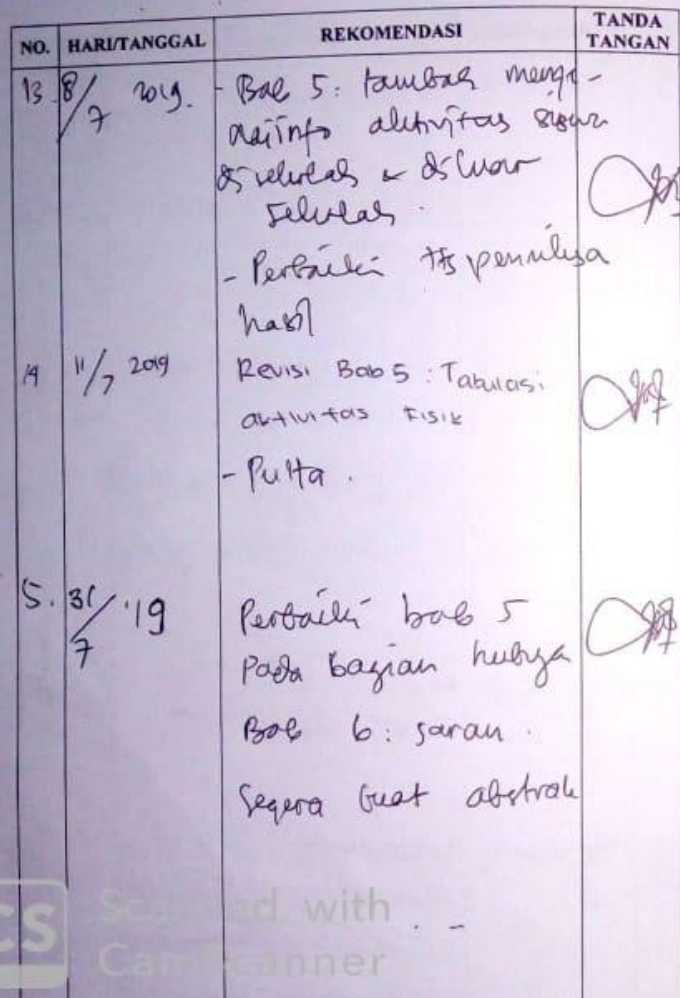 NO. HARI/TANGGAL REKOMENDASI TANDA TANGAN
13 8/7 2019. - Bab 5: tambah menge-
nai info aktivitas siswa
di sekolah & di luar
sekolah.
- Perbaiki penulisa
hasil
14 11/7 2019 Revisi Bab 5 : Tabulasi
aktivitas Fisik
5. 31/7 '19 Perbaiki bab 5
Pada bagian
Bab 6: saran.
Segera buat abstrak
CS Scanned with
CamScanner